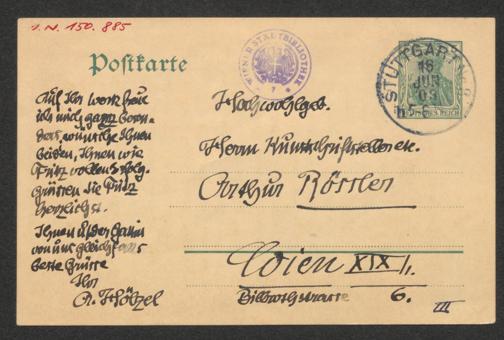 I.N. 150.885
Postkarte
WIENER STADTBIBLIOTHEK
STUTTGART
16
JUN
03
Auf Ihr werk freue
ich mich ganz beson-
ders, wünsche Ihnen
beiden, Ihnen wie
vollen Erfolg.
Grüssen Sie
herzlichst.
Ihnen u. der Gattin
von uns gleichfalls
beste Grüsse
Ihr
A. Hölzel
Hochwohlgeb.
Herrn Kunstschriftsteller etc.
Arthur Rössler
Wien XIX/1.
Billrothstrasse 6.
III